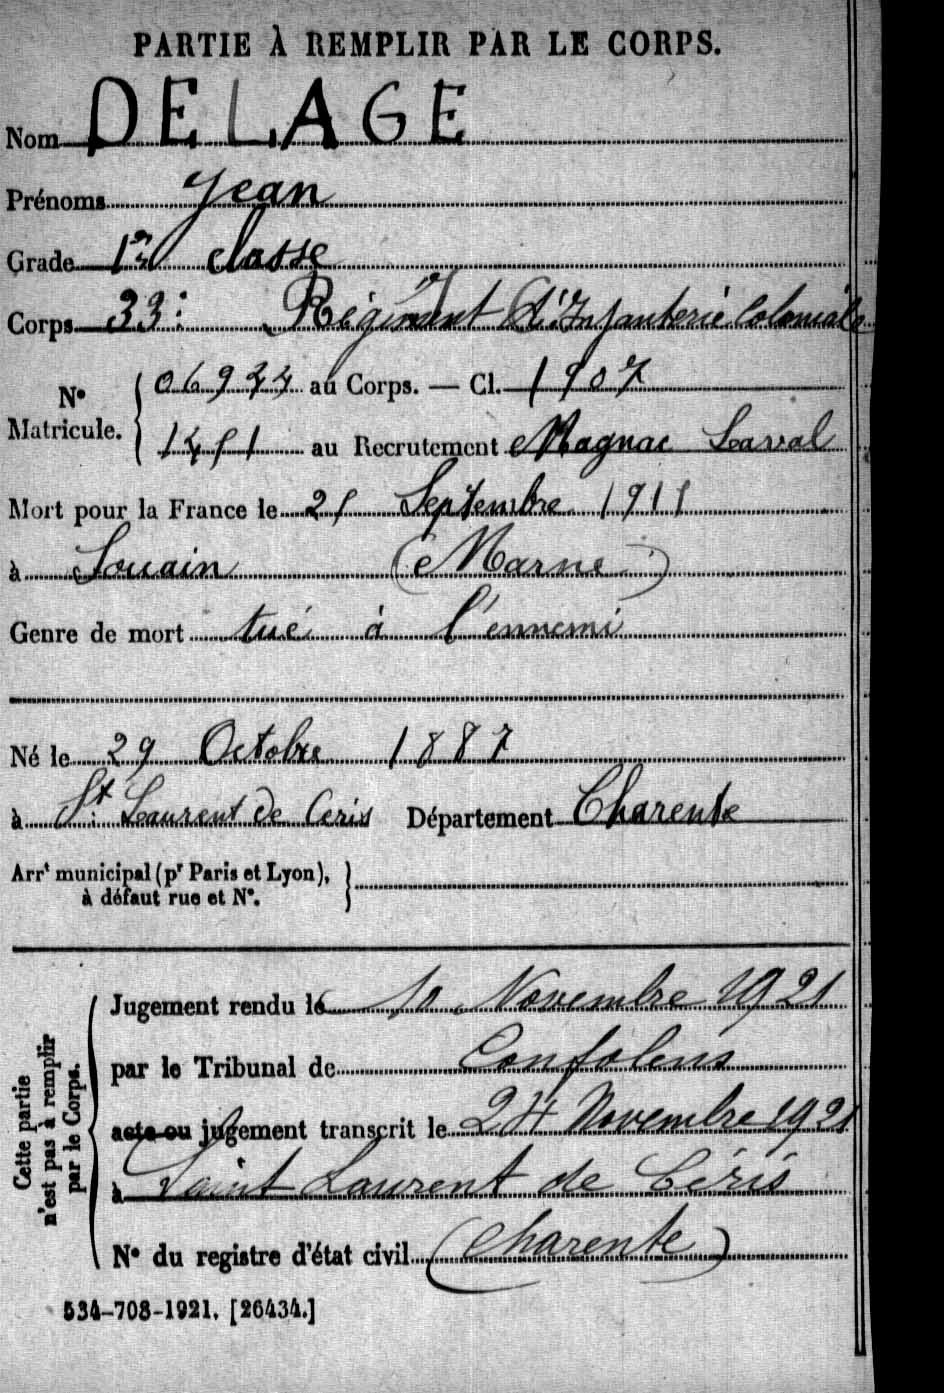 PARTIE À REMPLIR PAR LE CORPS.
Nom DELAGE
Prénoms Jean
Grade 1re classe
Corps 33e Régiment d'Infanterie Coloniale
N° Matricule. 06924 au Corps. — Cl. 1907
1451 au Recrutement Magnac Laval
Mort pour la France le 25 Septembre 1915
à Souain (Marne)
Genre de mort tué à l'ennemi
Né le 29 Octobre 1887
à St Laurent de Ceris Département Charente
Arrt municipal (pr Paris et Lyon),
à défaut rue et N°.
Cette partie
n'est pas à remplir
par le Corps.
Jugement rendu le 10 Novembre 1921
par le Tribunal de Confolens
acte ou jugement transcrit le 24 Novembre 1921
à Saint Laurent de Céris
N° du registre d'état civil (Charente)
534-708-1921. [26434.]